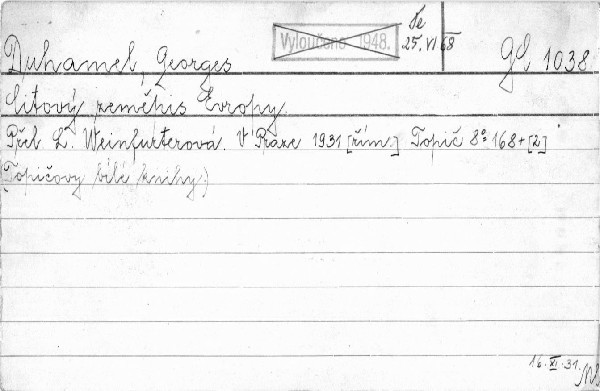 Vyloučeno 1948.
Še
25.VI 68
Duhamel, Georges
GL 1038
Citový zeměpis Evropy.
Přel. L. Weinfurterová. V Praze 1931 [řím.] Topič 8° 168+[2]
(Topičovy bílé knihy)
16.XI.31.